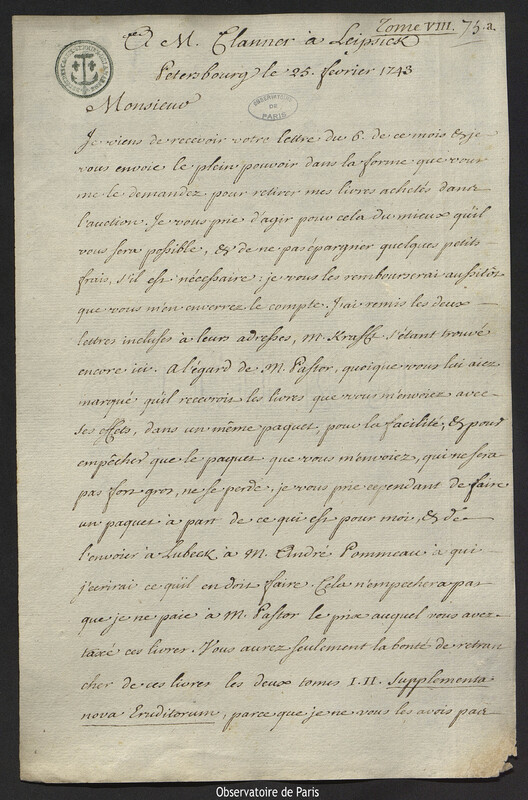 Tome VIII. 75.a.
A M. Clanner à Leipsick
Petersbourg le 25. fevrier 1743
OBSERVATOIRE
DE
PARIS
Monsieur
Je viens de recevoir votre lettre du 6. de ce mois & je
vous envoie le plein pouvoir dans la forme que vous
me le demandez pour retirer mes livres achetés dans
l'auction. Je vous prie d'agir pour cela du mieux qu'il
vous sera possible, & de ne pas épargner quelques petits
frais, s'il est nécessaire : je vous les rembourserai aussitôt
que vous m'en enverrez le compte. J'ai remis les deux
lettres incluses à leurs adresses, M. Krafft s'étant trouvé
encore ici. A l'égard de M. Pastor, quoique vous lui aiez
marqué qu'il recevroit les livres que vous m'envoiez avec
ses effets, dans un même paquet, pour la facilité, & pour
empêcher que le paquet que vous m'envoiez, qui ne sera
pas fort gros, ne se perde, je vous prie cependant de faire
un paquet à part de ce qui est pour moi, & de
l'envoier à Lubeck à M. André Pommeau à qui
j'ecrirai ce qu'il en doit faire. Cela n'empechera pas
que je ne paie à M. Pastor le prix auquel vous avez
taxé ces livres. Vous aurez seulement la bonté de retran
cher de ces livres les deux tomes I. II. Supplementa
nova Eruditorum, parce que je ne vous les avois pas
Observatoire de Paris